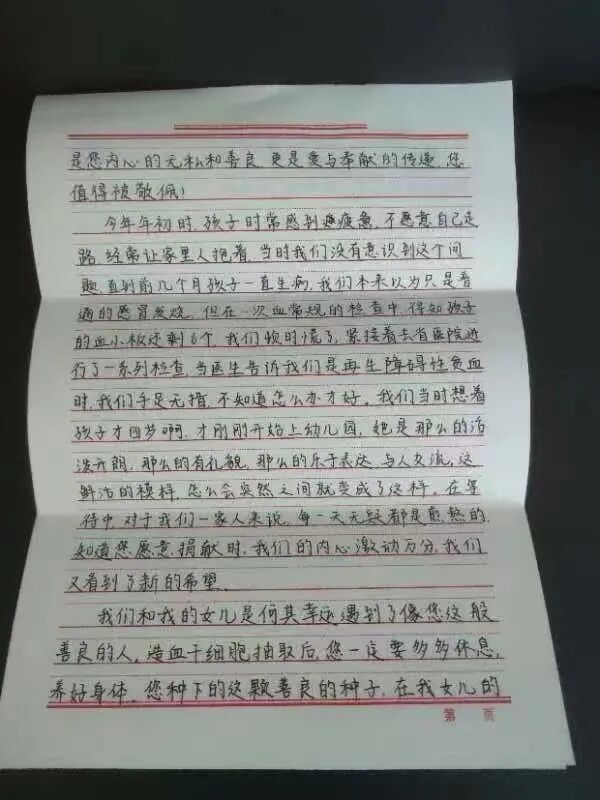 是您内心的无私和善良,更是爱与奉献的传递,您
值得被敬佩!
今年年初时,孩子时常感到疲惫,不愿意自己走
路,经常让家里人抱着,当时我们没有意识到这个问
题,直到前几个月孩子一直生病,我们本来以为只是普
通的感冒发烧,但在一次血常规的检查中,得知孩子
的血小板还剩6个,我们顿时慌了,紧接着去省医院进
行了一系列检查,当医生告诉我们是再生障碍性贫血
时,我们手足无措,不知道怎么办才好,我们当时想着
孩子才四岁啊,才刚刚开始上幼儿园,她是那么的活
泼开朗,那么的有礼貌,那么的乐于表达,与人交流,这
鲜活的模样,怎么会突然之间就变成了这样。在等
待中,对于我们一家人来说,每一天无疑都是煎熬的,
知道您愿意捐献时,我们的内心激动万分,我们
又看到了新的希望。
我们和我的女儿是何其幸运遇到了像您这般
善良的人,造血干细胞抽取后,您一定要多多休息,
养好身体。您种下的这颗善良的种子,在我女儿的
第 页